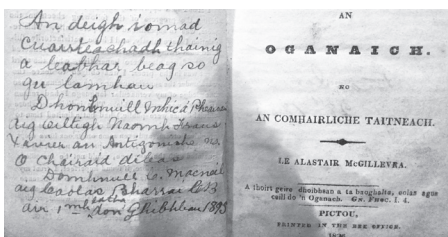 An deigh iomad
cuairteachadh thainig
a leabhar beag so
gu lamhan
Dhomhnuill Mhic a
aig oiltigh Naomh Frans
Xavier an Antigonish
O Charaid dileas
Domhnull C. Macneil
aig Caolas Bharrai C.B
air 1mh don Ghiblean
AN
OGANAICH.
NO
AN COMHAIRLICHE TAITNEACH.
LE ALASTAIR McGILLEVRA.
A thoirt geire dhoibhsan a ta baoghalta, eolas agus
ceill do 'n Oganach. GN. FHOC. I. 4.
PICTOU,
PRINTED IN THE BEE OFFICE.